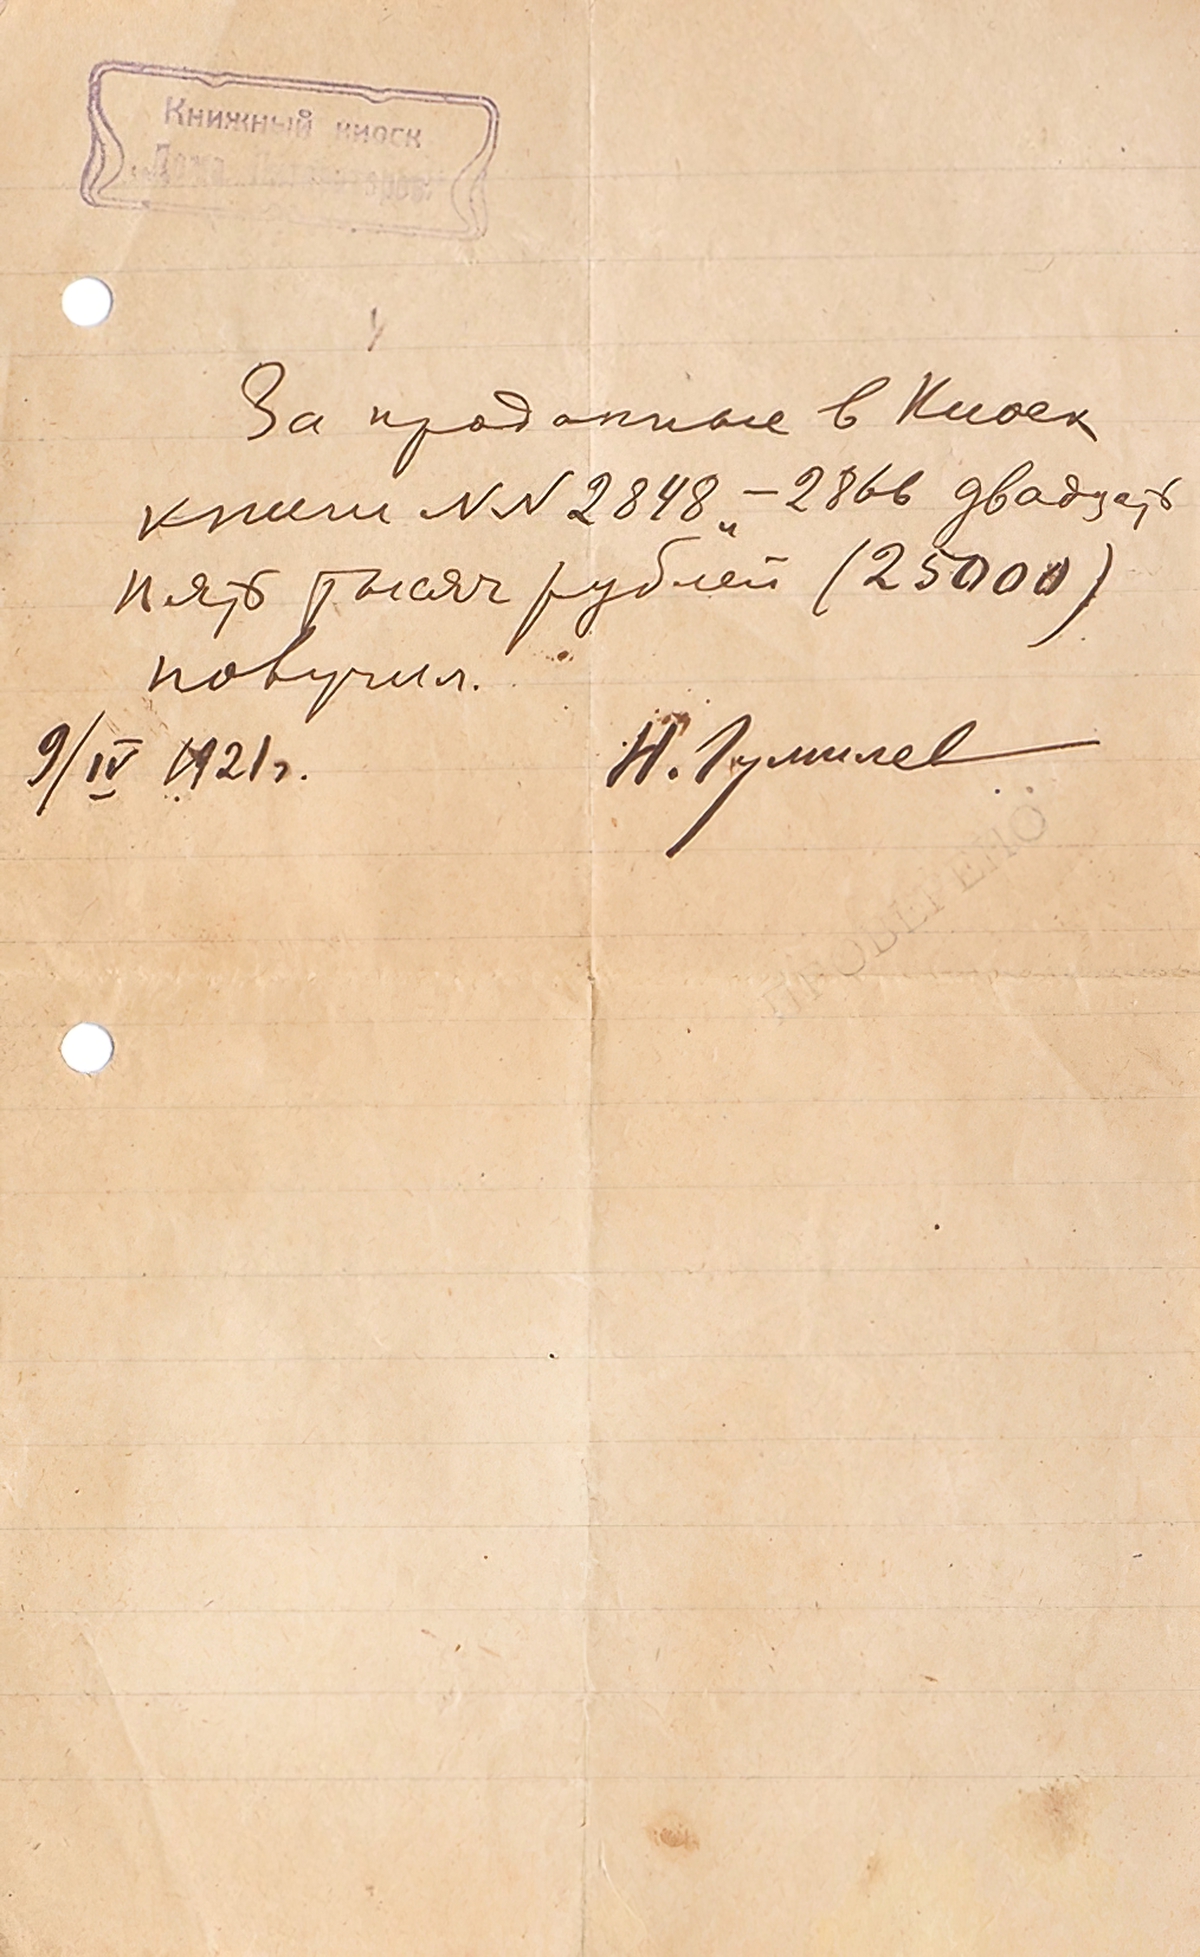 Книжный киоск
„Дома Литераторов“
За проданные в Киоск
книги NN 2848 „ — 2866 двадцать
пять тысяч рублей (25000)
получил.
9/IV 1921г.
Н. Гумилев
ПРОВЕРЕНО